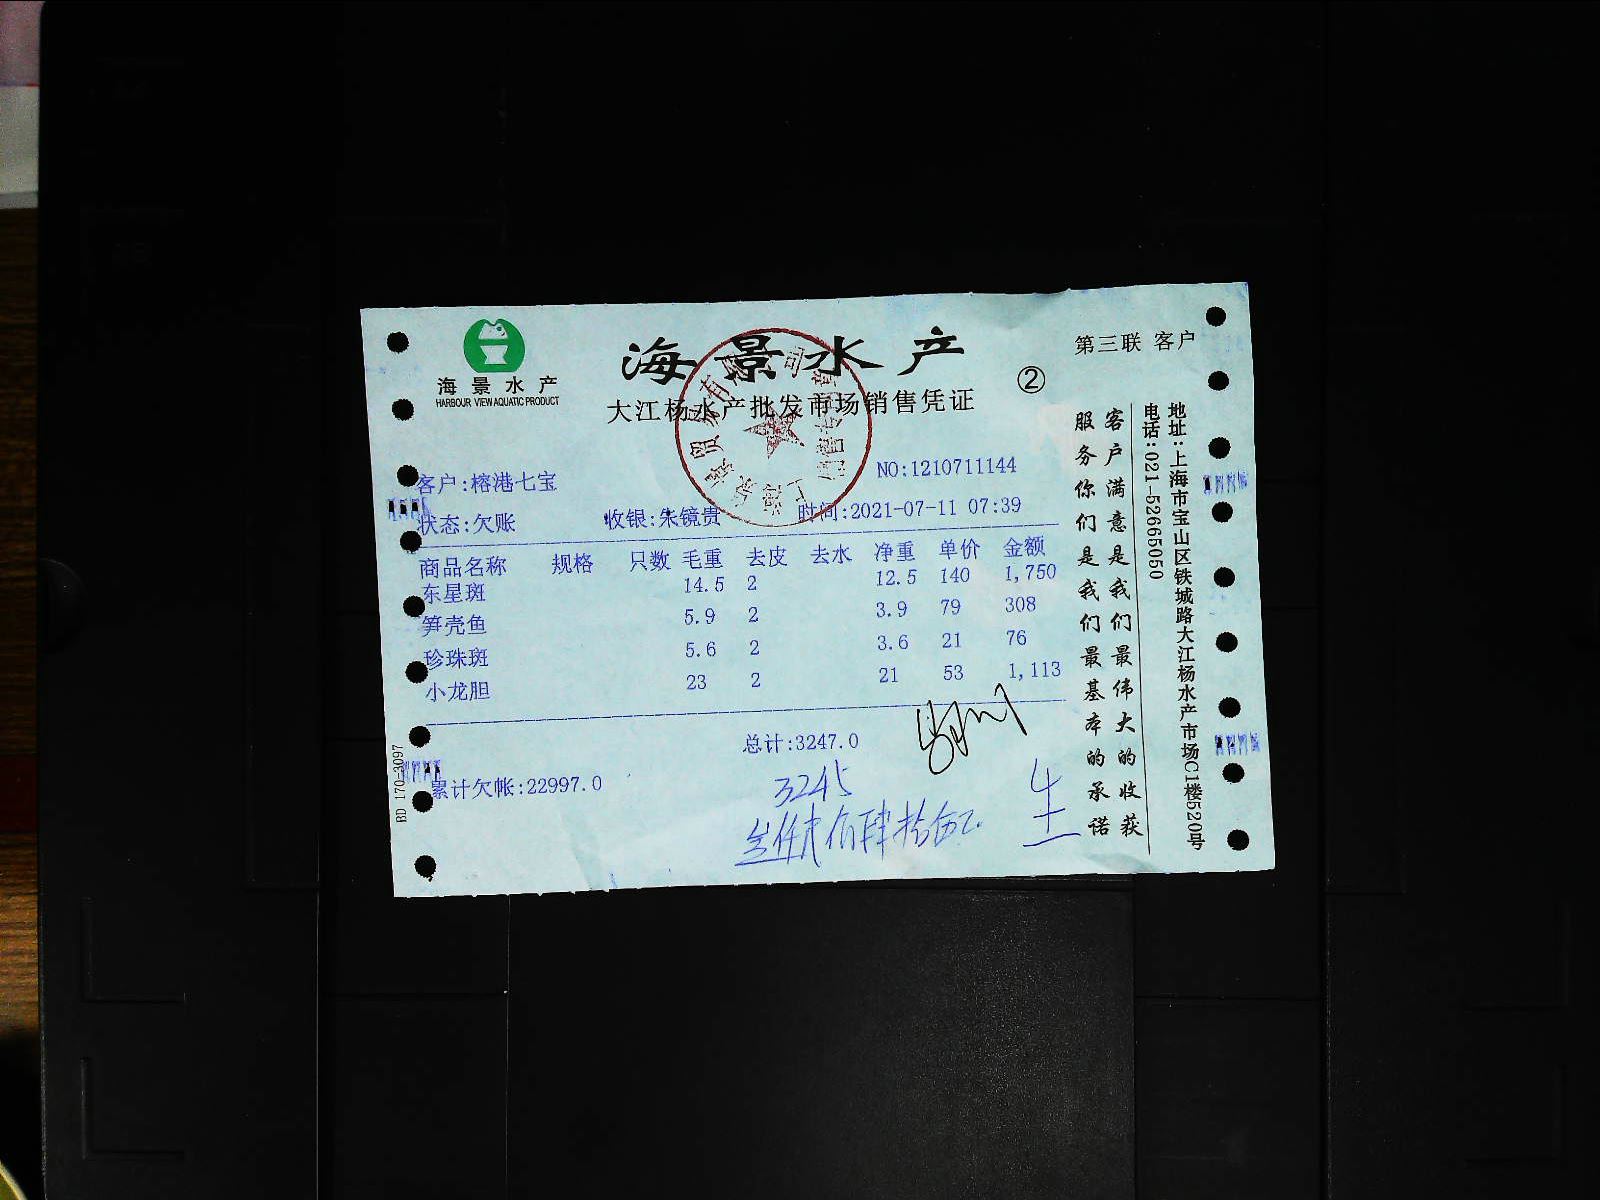 海景水产
HARBOUR VIEW AQUATIC PRODUCT
海景水产
大江杨水产批发市场销售凭证
②
第三联 客户
客户:榕港七宝
NO:1210711144
状态:欠账 收银:朱镜贵 时间:2021-07-11 07:39
商品名称 规格 只数 毛重 去皮 去水 净重 单价 金额
东星斑 14.5 2 12.5 140 1,750
笋壳鱼 5.9 2 3.9 79 308
珍珠斑 5.6 2 3.6 21 76
小龙胆 23 2 21 53 1,113
总计:3247.0
累计欠帐:22997.0
3245
叁仟贰佰肆拾伍元
客户满意是我们最伟大的收获
服务你们是我们最基本的承诺
地址:上海市宝山区铁城路大江杨水产市场C1楼520号
电话:021-52665050
BD 170-3097